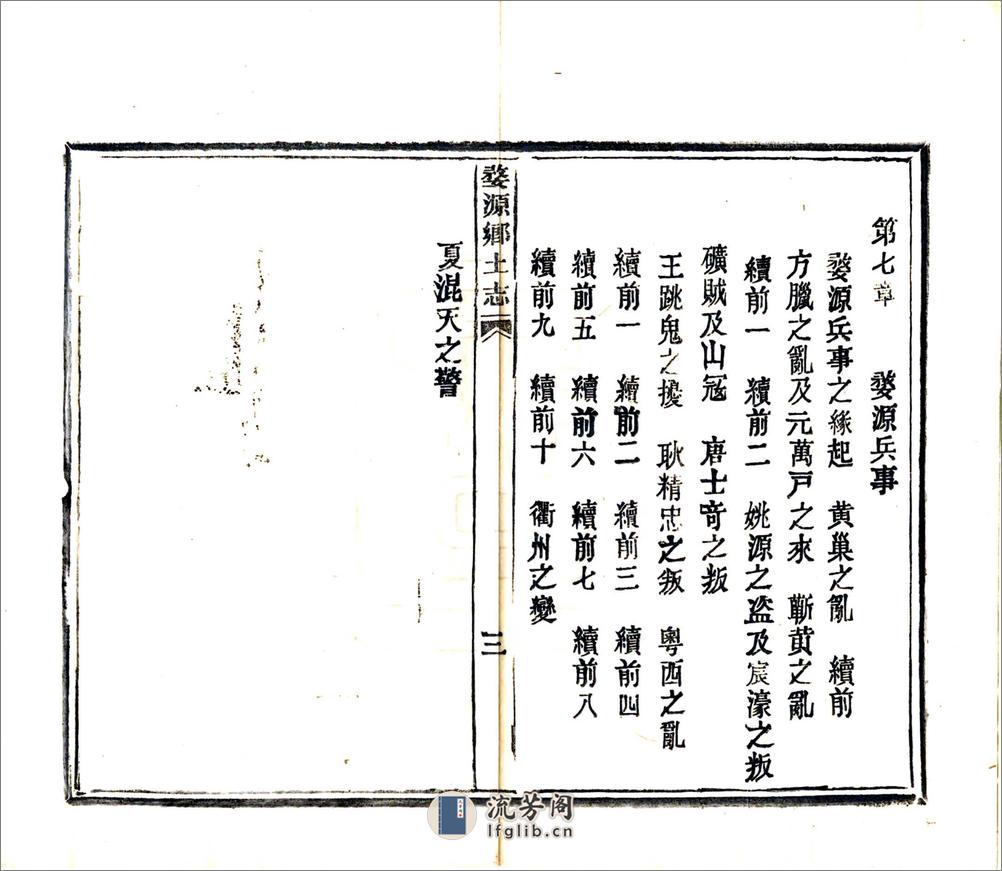 第七章 婺源兵事
婺源兵事之緣起 黃巢之亂 續前
方臘之亂及元萬戸之來 蘄黃之亂
續前一 續前二 姚源之盗及宸濠之叛
礦賊及山冦 唐士竒之叛
王跳鬼之擾 耿精忠之叛 粵西之亂
續前一 續前二 續前三 續前四
續前五 續前六 續前七 續前八
續前九 續前十 衢州之變
婺源鄉土志 三
夏混天之警
流芳阁
lfglib.cn